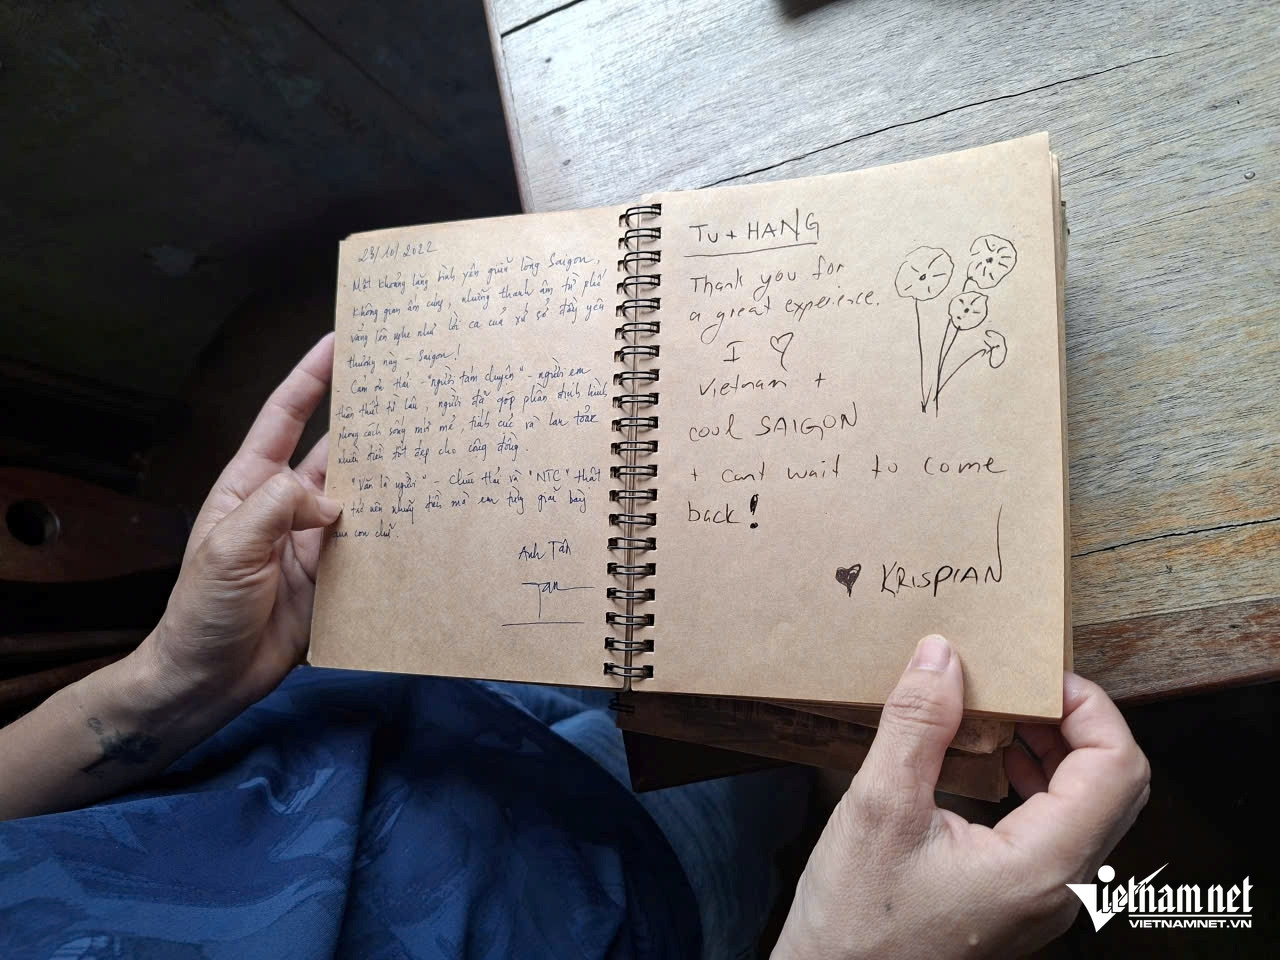 23/10/2022
- Một khoảng lặng bình yên giữa lòng Saigon,
không gian ấm cúng, những thanh âm từ phố
vẳng lên nghe như lời ca của xứ sở đầy yêu
thương này - Saigon!
- Cảm ơn Thái "người tám chuyện" - người em
thân thiết từ lâu, người đã góp phần định hình
phong cách sống mới mẻ, tích cực và lan toả
nhiều điều tốt đẹp cho cộng đồng.
- "Văn là người" - chúc Thái và "NTC" thật
tử tế nên những điều mà em từng giãi bày
qua con chữ.
Anh Tân
Tan
TU + HANG
Thank you for
a great experience.
I ♡
Vietnam +
cool SAIGON
+ cant wait to come
back!
♥ KRISPIAN
Vietnamnet
VIETNAMNET.VN